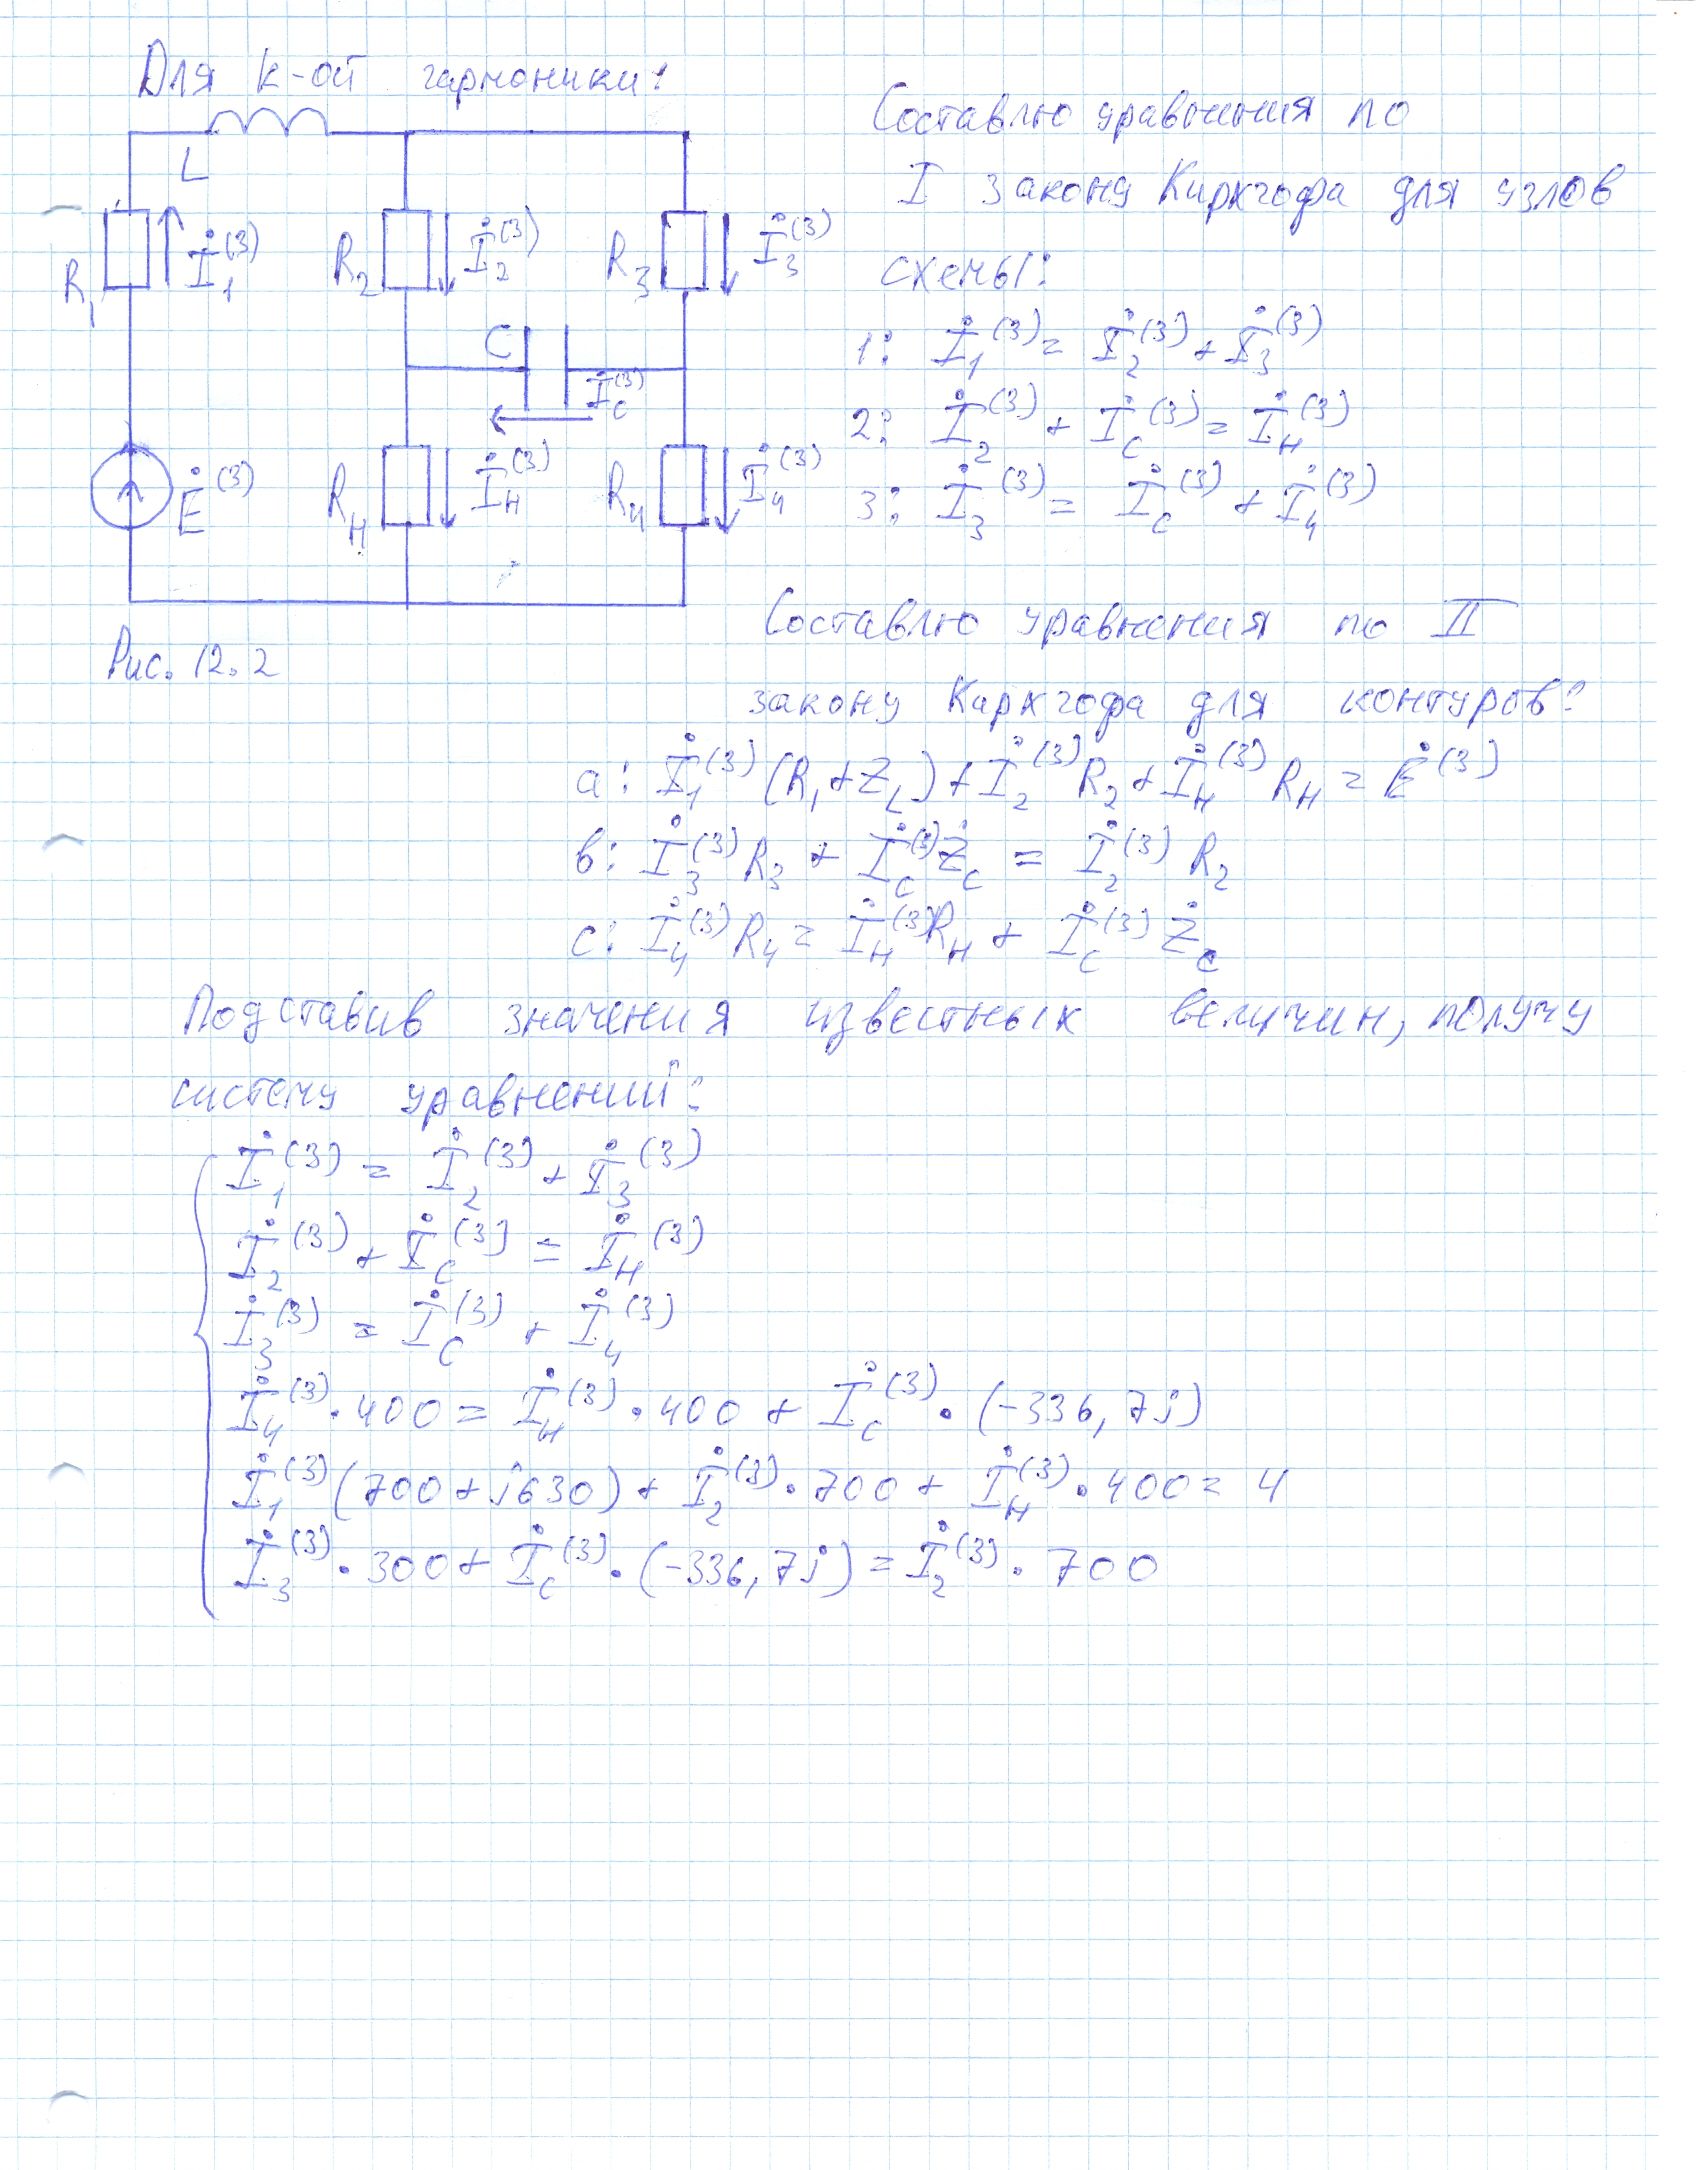 Для k-ой гармоники:
L
R₁
İ₁⁽³⁾
R₂
İ₂⁽³⁾
R₃
İ₃⁽³⁾
C
İ_C⁽³⁾
Ė⁽³⁾
R_H
İ_H⁽³⁾
R₄
İ₄⁽³⁾
Рис. 12.2
Составлю уравнения по
I закону Кирхгофа для узлов
схемы:
1: İ₁⁽³⁾ = İ₂⁽³⁾ + İ₃⁽³⁾
2: İ₂⁽³⁾ + İ_C⁽³⁾ = İ_H⁽³⁾
3: İ₃⁽³⁾ = İ_C⁽³⁾ + İ₄⁽³⁾
Составлю уравнения по II
закону Кирхгофа для контуров:
a: İ₁⁽³⁾ (R₁ + Z_L) + İ₂⁽³⁾ R₂ + İ_H⁽³⁾ R_H = Ė⁽³⁾
в: İ₃⁽³⁾ R₃ + İ_C⁽³⁾ Ż_C = İ₂⁽³⁾ R₂
c: İ₄⁽³⁾ R₄ = İ_H⁽³⁾ R_H + İ_C⁽³⁾ Ż_C
Подставив значения известных величин, получу
систему уравнений:
İ₁⁽³⁾ = İ₂⁽³⁾ + İ₃⁽³⁾
İ₂⁽³⁾ + İ_C⁽³⁾ = İ_H⁽³⁾
İ₃⁽³⁾ = İ_C⁽³⁾ + İ₄⁽³⁾
İ₄⁽³⁾ · 400 = İ_H⁽³⁾ · 400 + İ_C⁽³⁾ · (-336,7j)
İ₁⁽³⁾ (700 + j630) + İ₂⁽³⁾ · 700 + İ_H⁽³⁾ · 400 = 4
İ₃⁽³⁾ · 300 + İ_C⁽³⁾ · (-336,7j) = İ₂⁽³⁾ · 700